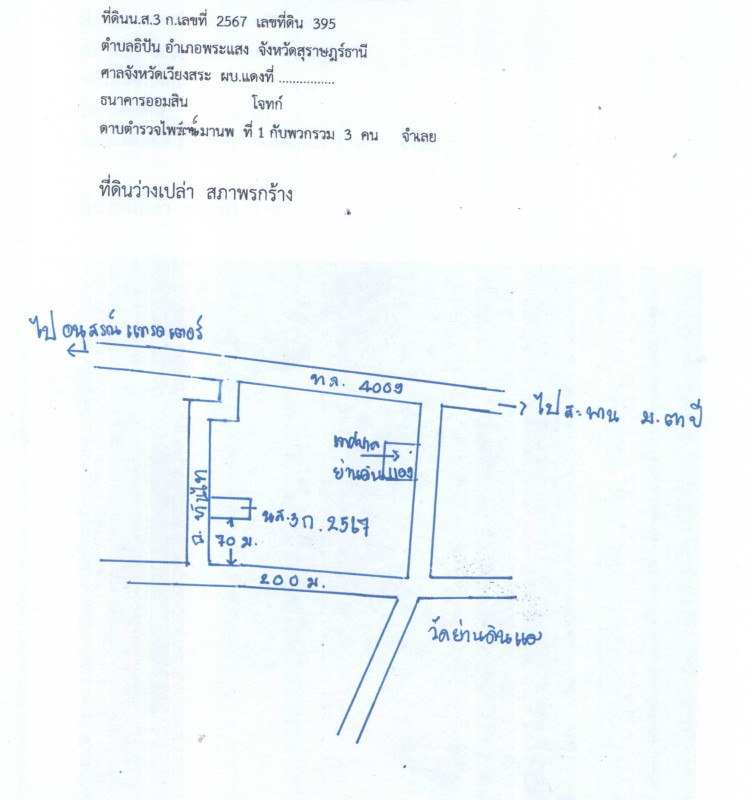 ที่ดินน.ส.3 ก.เลขที่ 2567 เลขที่ดิน 395
ตำบลอิปัน อำเภอพระแสง จังหวัดสุราษฎร์ธานี
ศาลจังหวัดเวียงสระ ผบ.แดงที่ ................
ธนาคารออมสิน โจทก์
ดาบตำรวจไพรัตน์ มานพ ที่ 1 กับพวกรวม 3 คน จำเลย
ที่ดินว่างเปล่า สภาพรกร้าง
ไป อนุสรณ์ แทรคเตอร์
ทล. 4009
ไปสะพาน ม.ตาปี
เทศบาล
ย่านดินแดง
นส.3ก. 2567
70 ม.
200 ม.
วัดย่านดินแดง